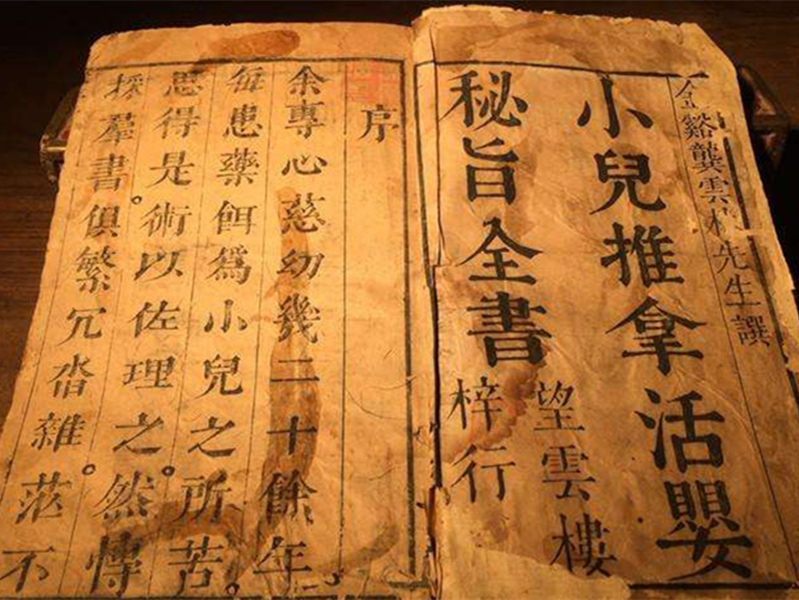 金谿龔雲林先生譔
小兒推拿活嬰
秘旨全書
望雲樓
梓行
序
余專心慈幼幾二十餘年
每患藥餌爲小兒之所苦。
思得是術以佐理之。然愽
採羣書。俱繁冗沓雜。茫不